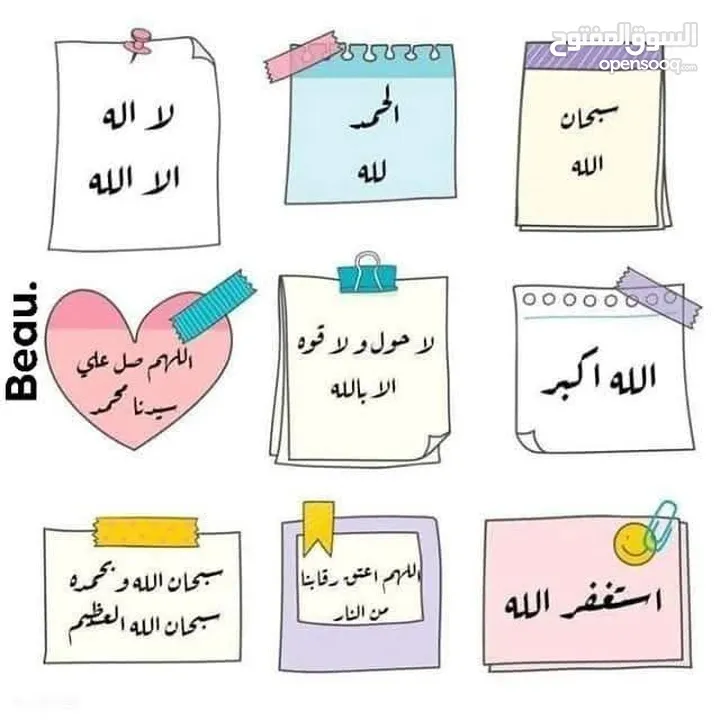 السوق المفتوح
opensooq.com
سبحان
الله
الحمد
لله
لا اله
الا الله
الله اكبر
لا حول و لا قوه
الا بالله
اللهم صل علي
سيدنا محمد
Beau.
استغفر الله
اللهم اعتق رقابنا
من النار
سبحان الله و بحمده
سبحان الله العظيم